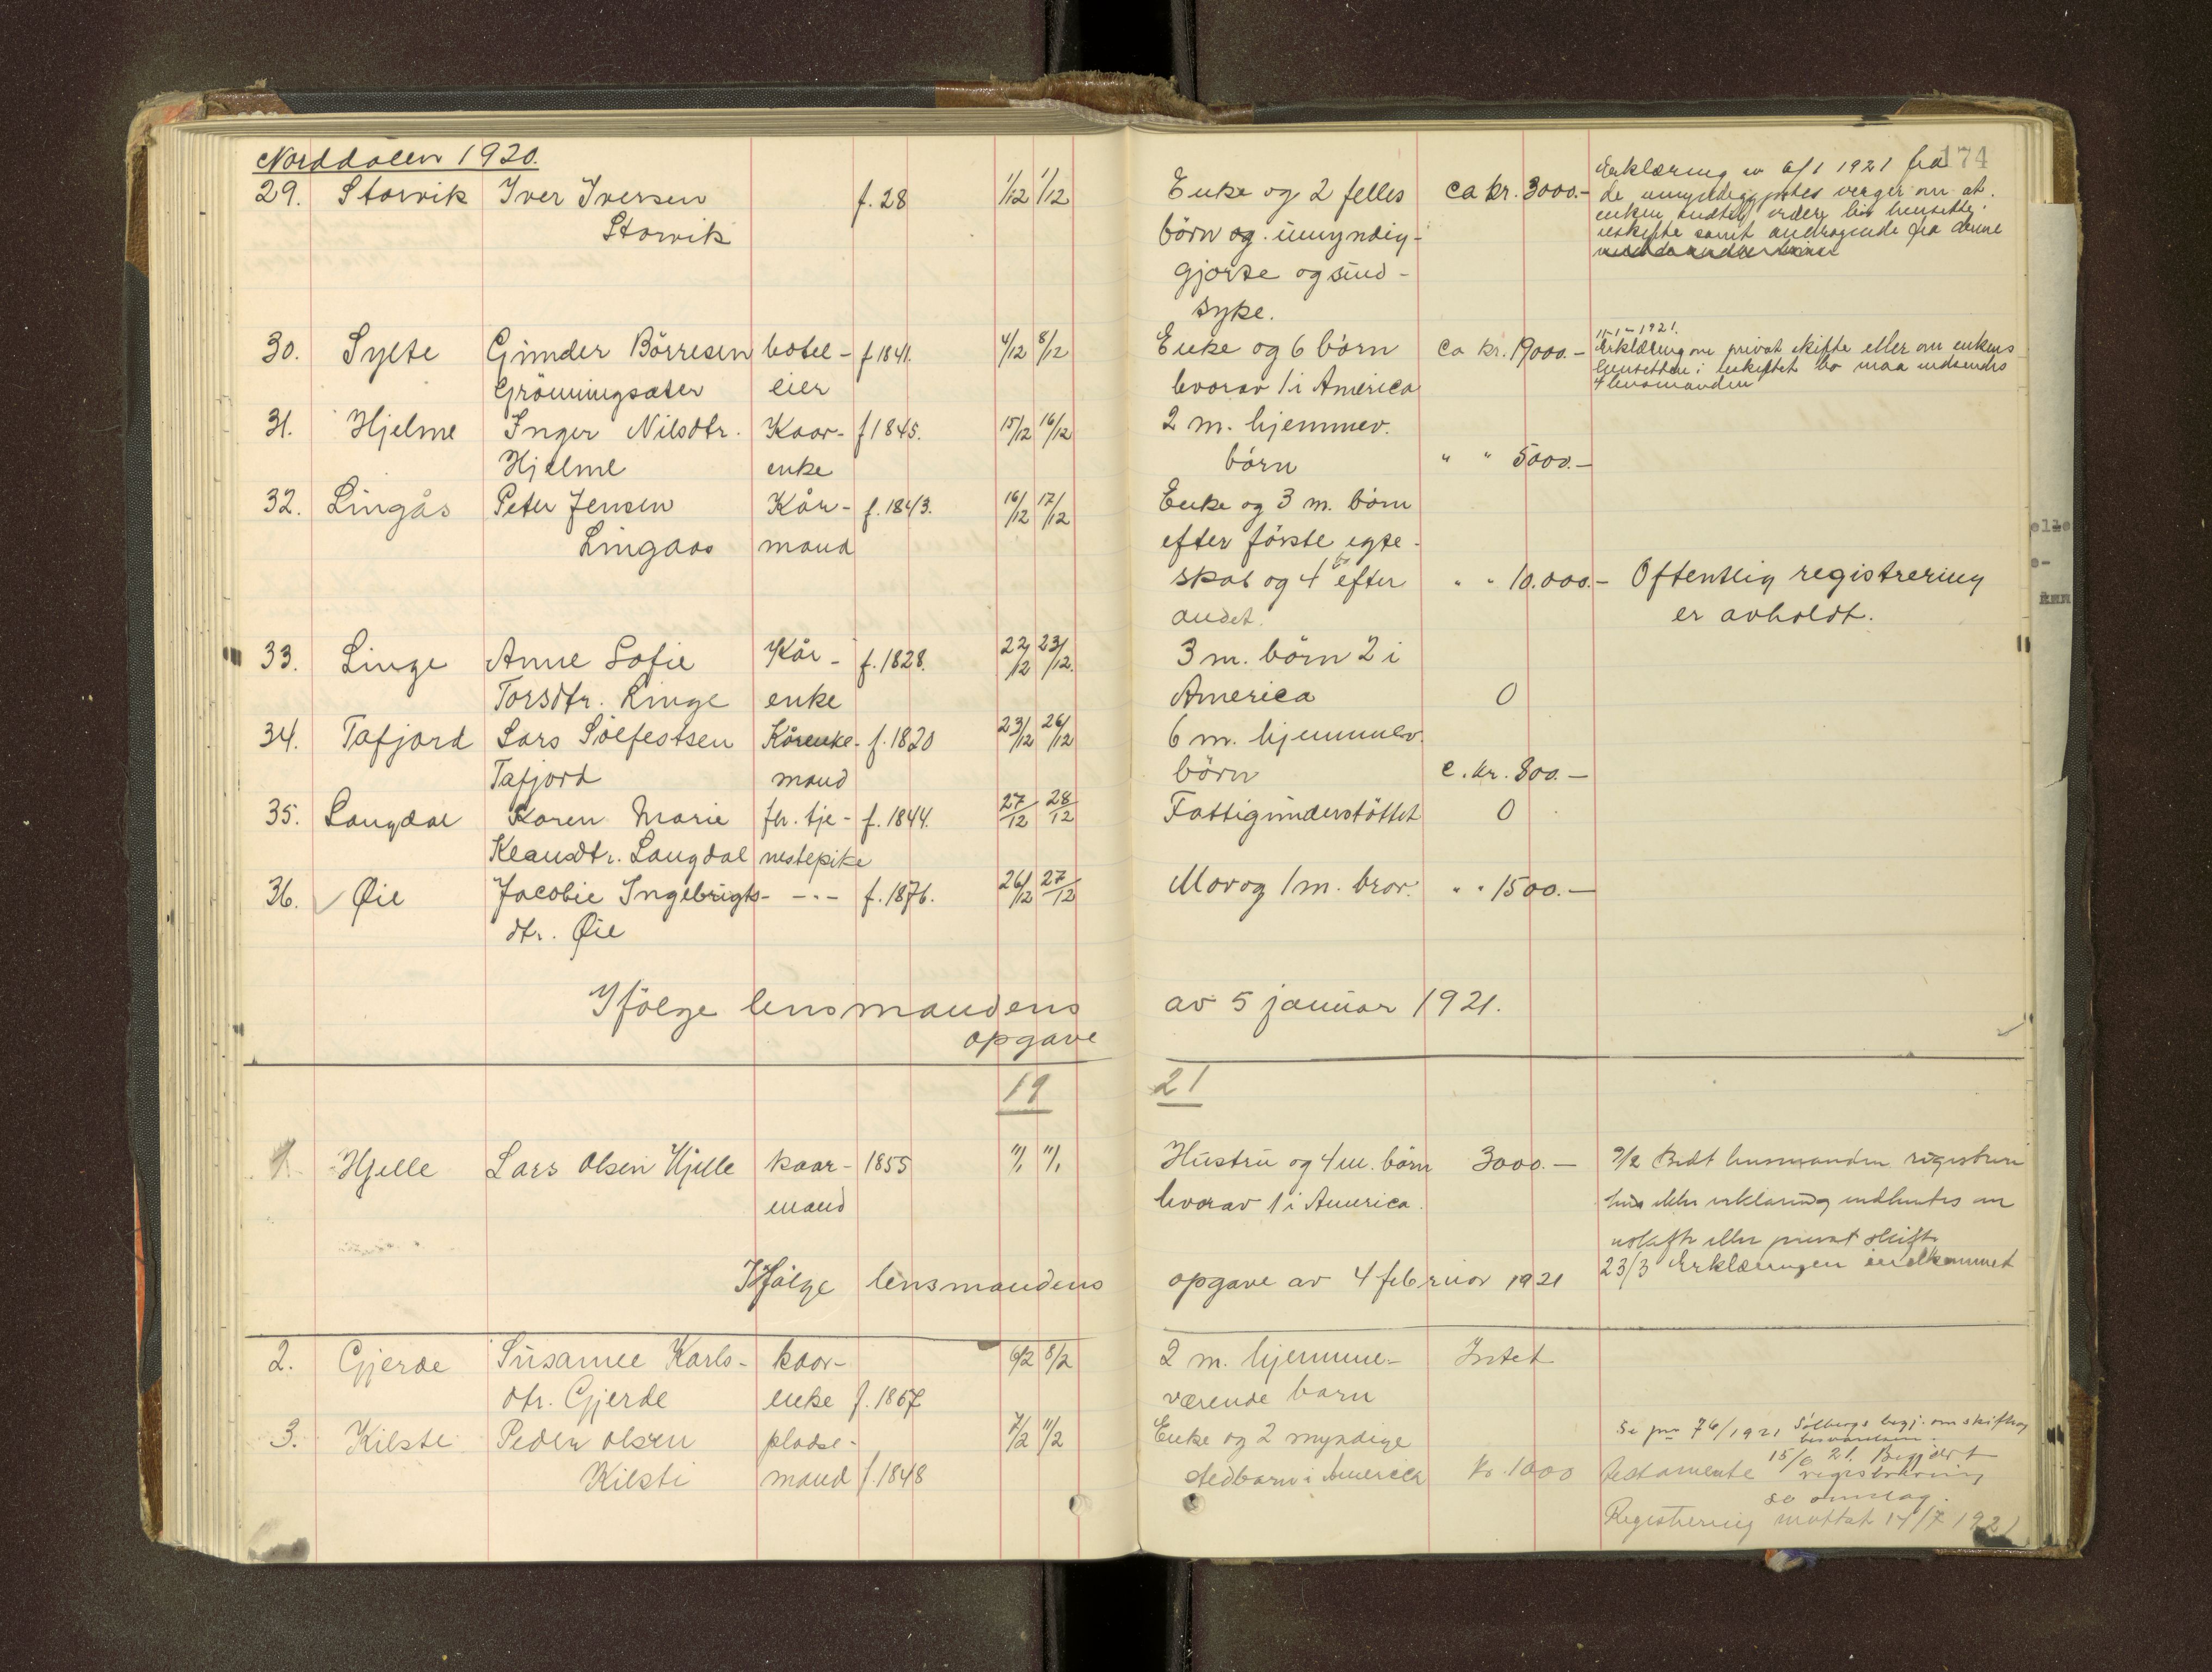 Norddalen 1920.
174
29. Storvik Iver Iversen f. 28 1/12 1/12 Enke og 2 felles ca kr. 3000.- Erklæring av 6/1 1921 fra
Storvik børn og umyndig- de umyndiggjortes verger om at
gjorte og sind- enken sittende i
syke. uskifte samt andragende fra denne
30. Sylte Gunder Börresen hotel- f 1841. 4/12 8/12 Enke og 6 børn ca kr. 19000.- 11-1-1921.
Grönningsæter eier hvorav 1 i America Erklæring om privat skifte eller om enkens
hensitten i uskiftet bo maa indsendes
lensmanden
31. Hjelme Inger Nilsdtr. Kaar- f 1845. 15/12 16/12 2 m. hjemmev.
Hjelme enke børn " " 5000.-
32. Lingås Peter Jensen Kår- f. 1843. 16/12 17/12 Enke og 3 m. børn
Lingaas mand efter første egte-
skab og 4 efter " " 10.000.- Offentlig registrering
andet. er avholdt.
33. Linge Anne Sofie Kår- f. 1828. 22/12 23/12. 3 m. børn 2 i
Torsdtr. Linge enke America 0
34. Tafjord Lars Sölfestsen Kårenke- f. 1820 23/12 26/12 6 m. hjemmev.
Tafjord mand børn c. kr. 800.-
35. Langdal Karen Marie fh. tje- f. 1844. 27/12 28/12 Fattigunderstöttet 0
Klausdtr. Langdal nestepike
36. Øie Jacobie Ingebrigts- -"- f. 1876. 26/12 27/12 Mor og 1 m. bror. " " 1500.-
dtr. Øie
Ifölge lensmandens av 5 januar 1921.
opgave
19 21
1. Hjelle Lars Olsen Hjelle kaar- 1855 11/1 11/1 Hustru og 4 m. børn 3000.- 9/2 Bedt lensmanden registrere
mand hvorav 1 i America. hvis ikke erklæring indhentes om
uskifte eller privat skifte
23/3 Erklæringen indkommet
Ifölge lensmandens opgave av 4 februar 1921
2. Gjerde Susanne Karls- kaar- 6/2 8/2 2 m. hjemme- Intet
dtr. Gjerde enke f. 1857 værende barn
3. Kilsti Peder Olsen plads- 7/2 11/2 Enke og 2 myndige Se 76/1921 Solbergs begj. om skifte og
Kilsti mand f. 1848 stedbarn i America kr. 1000 testamente 15/6 21. Begjært
registrering
se omslag.
Registrering mottat 14/7 1921